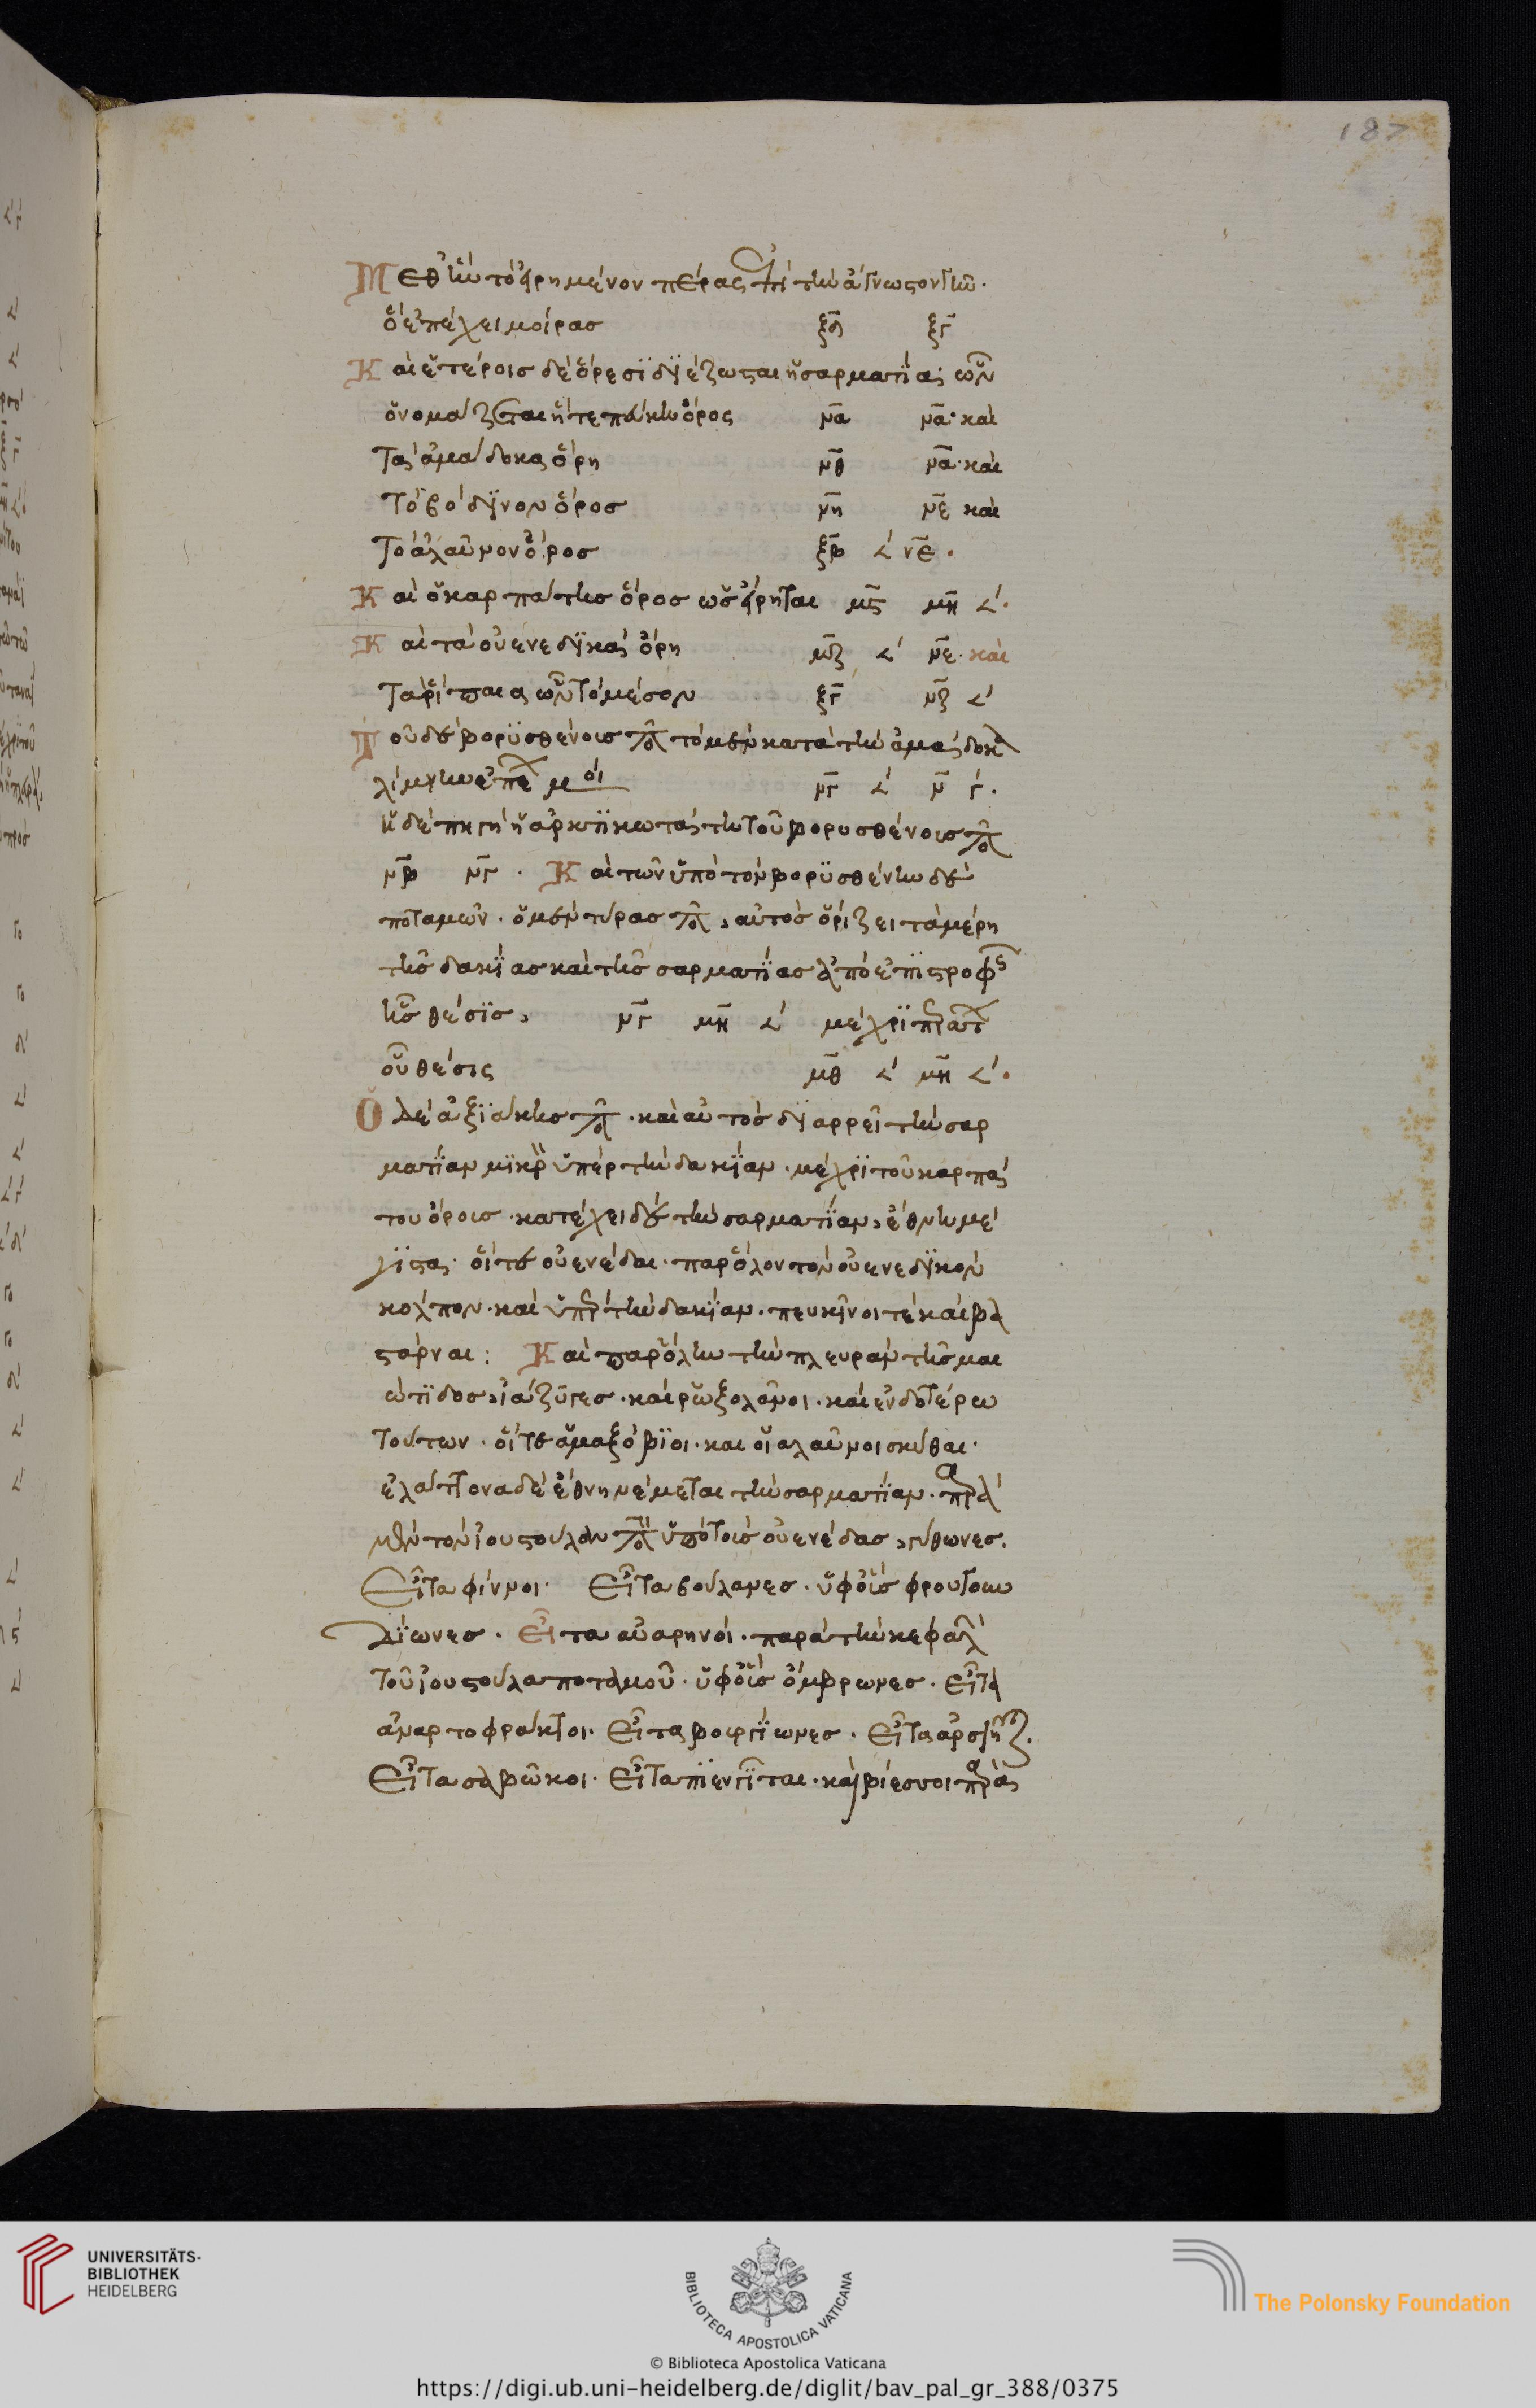 187
Μεθ ἣν τὸ εἰρημένον πέρας ἐπὶ τὴν ἄγνωστον γῆν.
ὃ ἐπέχει μοίρας ξδ ξγ
Καὶ ἑτέροις δὲ ὄρεσι διέζωσται ἡ σαρματία· ὧν
ὀνομάζεται ἥ τε πεύκη ὄρος να να· καὶ
Τὰ ἀμάδοκα ὄρη νθ να· καὶ
Τὸ βόδινον ὄρος νη νε καὶ
Τὸ ἄλαῦνον ὄρος ξβ ∠΄ νε.
Καὶ ὁ καρπάτης ὄρος ὡς εἴρηται μς μη ∠΄.
Καὶ τὰ οὐενεδικὰ ὄρη μζ ∠΄ νε· καὶ
Τὰ ῥίπαια ὧν τὸ μέσον ξγ νζ ∠΄
Τοῦ δὲ βορυσθένους ποταμοῦ τὸ μὲν κατὰ τὴν ἀμάδοκα
λίμνην ἐπέχει μοί νγ ∠΄ ν γ΄.
ἡ δὲ πηγὴ ἡ ἀρκτικωτάτη τοῦ βορυσθένους ποταμοῦ
νβ νγ. Καὶ τῶν ὑπὸ τὸν βορυσθένην δὲ
ποταμῶν. ὁ μὲν τύρας ποταμός, αὐτὸς ὁρίζει τὰ μέρη
τῆς δακίας καὶ τῆς σαρματίας ἀπὸ ἐπιστροφῆς
ἧς θέσις, νγ μη ∠΄ μέχρι πέρατος
οὗ θέσις μθ ∠΄ μη ∠΄.
Ὁ δὲ ἀξιάκης ποταμός. καὶ αὐτὸς διαρρεῖ τὴν σαρ
ματίαν μικρὸν ὑπὲρ τὴν δακίαν. μέχρι τοῦ καρπά
του ὄρους. κατέχει δὲ τὴν σαρματίαν, ἔθνη μέ
γιστα. οἵ τε οὐενέδαι. παρ ὅλον τὸν οὐενεδικὸν
κόλπον. καὶ ὑπὲρ τὴν δακίαν. πευκῖνοι τὲ καὶ βα
στάρναι: Καὶ παρ ὅλην τὴν πλευρὰν τῆς μαι
ώτιδος, ἰάζυγες. καὶ ῥωξολᾶνοι. καὶ ἐνδοτέρω
τούτων. οἵ τε ἁμαξόβιοι. και οἱ αλαῦνοι σκύθαι.
ἐλάττονα δὲ ἔθνη νέμεται τὴν σαρματίαν. παρὰ
μὲν τὸν ἰουστούλαν ποταμὸν ὑπὸ τοὺς οὐενέδας, γύθωνες.
Εἶτα φίννοι. Εἶτα βούλανες. ὑφ οἷς φρουγουν
δίωνες. Εἶτα αὐαρηνοί. παρὰ τὴν κεφαλὴν
τοῦ ἰουστούλα ποταμοῦ. ὑφ οἷς ὄμβρωνες. Εἶτα
ἀναρτοφράκτοι. Εἶτα βουργίωνες. Εἶτα ἀρσιῆται.
Εἶτα σαβῶκοι. Εἶτα πιενγῖται. καὶ βίεσσοι παρὰ
UNIVERSITÄTS-
BIBLIOTHEK
HEIDELBERG
BIBLIOTECA APOSTOLICA VATICANA
The Polonsky Foundation
© Biblioteca Apostolica Vaticana
https://digi.ub.uni-heidelberg.de/diglit/bav_pal_gr_388/0375